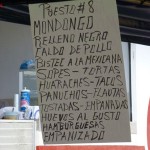 PUESTO #8
MONDONGO
RELLENO NEGRO
CALDO DE POLLO
BISTEC A LA MEXICANA
SOPES - TORTAS
HUARACHES - TACOS
PANUCHOS - FLAUTAS
TOSTADAS - EMPANADAS
HUEVOS AL GUSTO
HAMBURGUESAS
EMPANIZADO